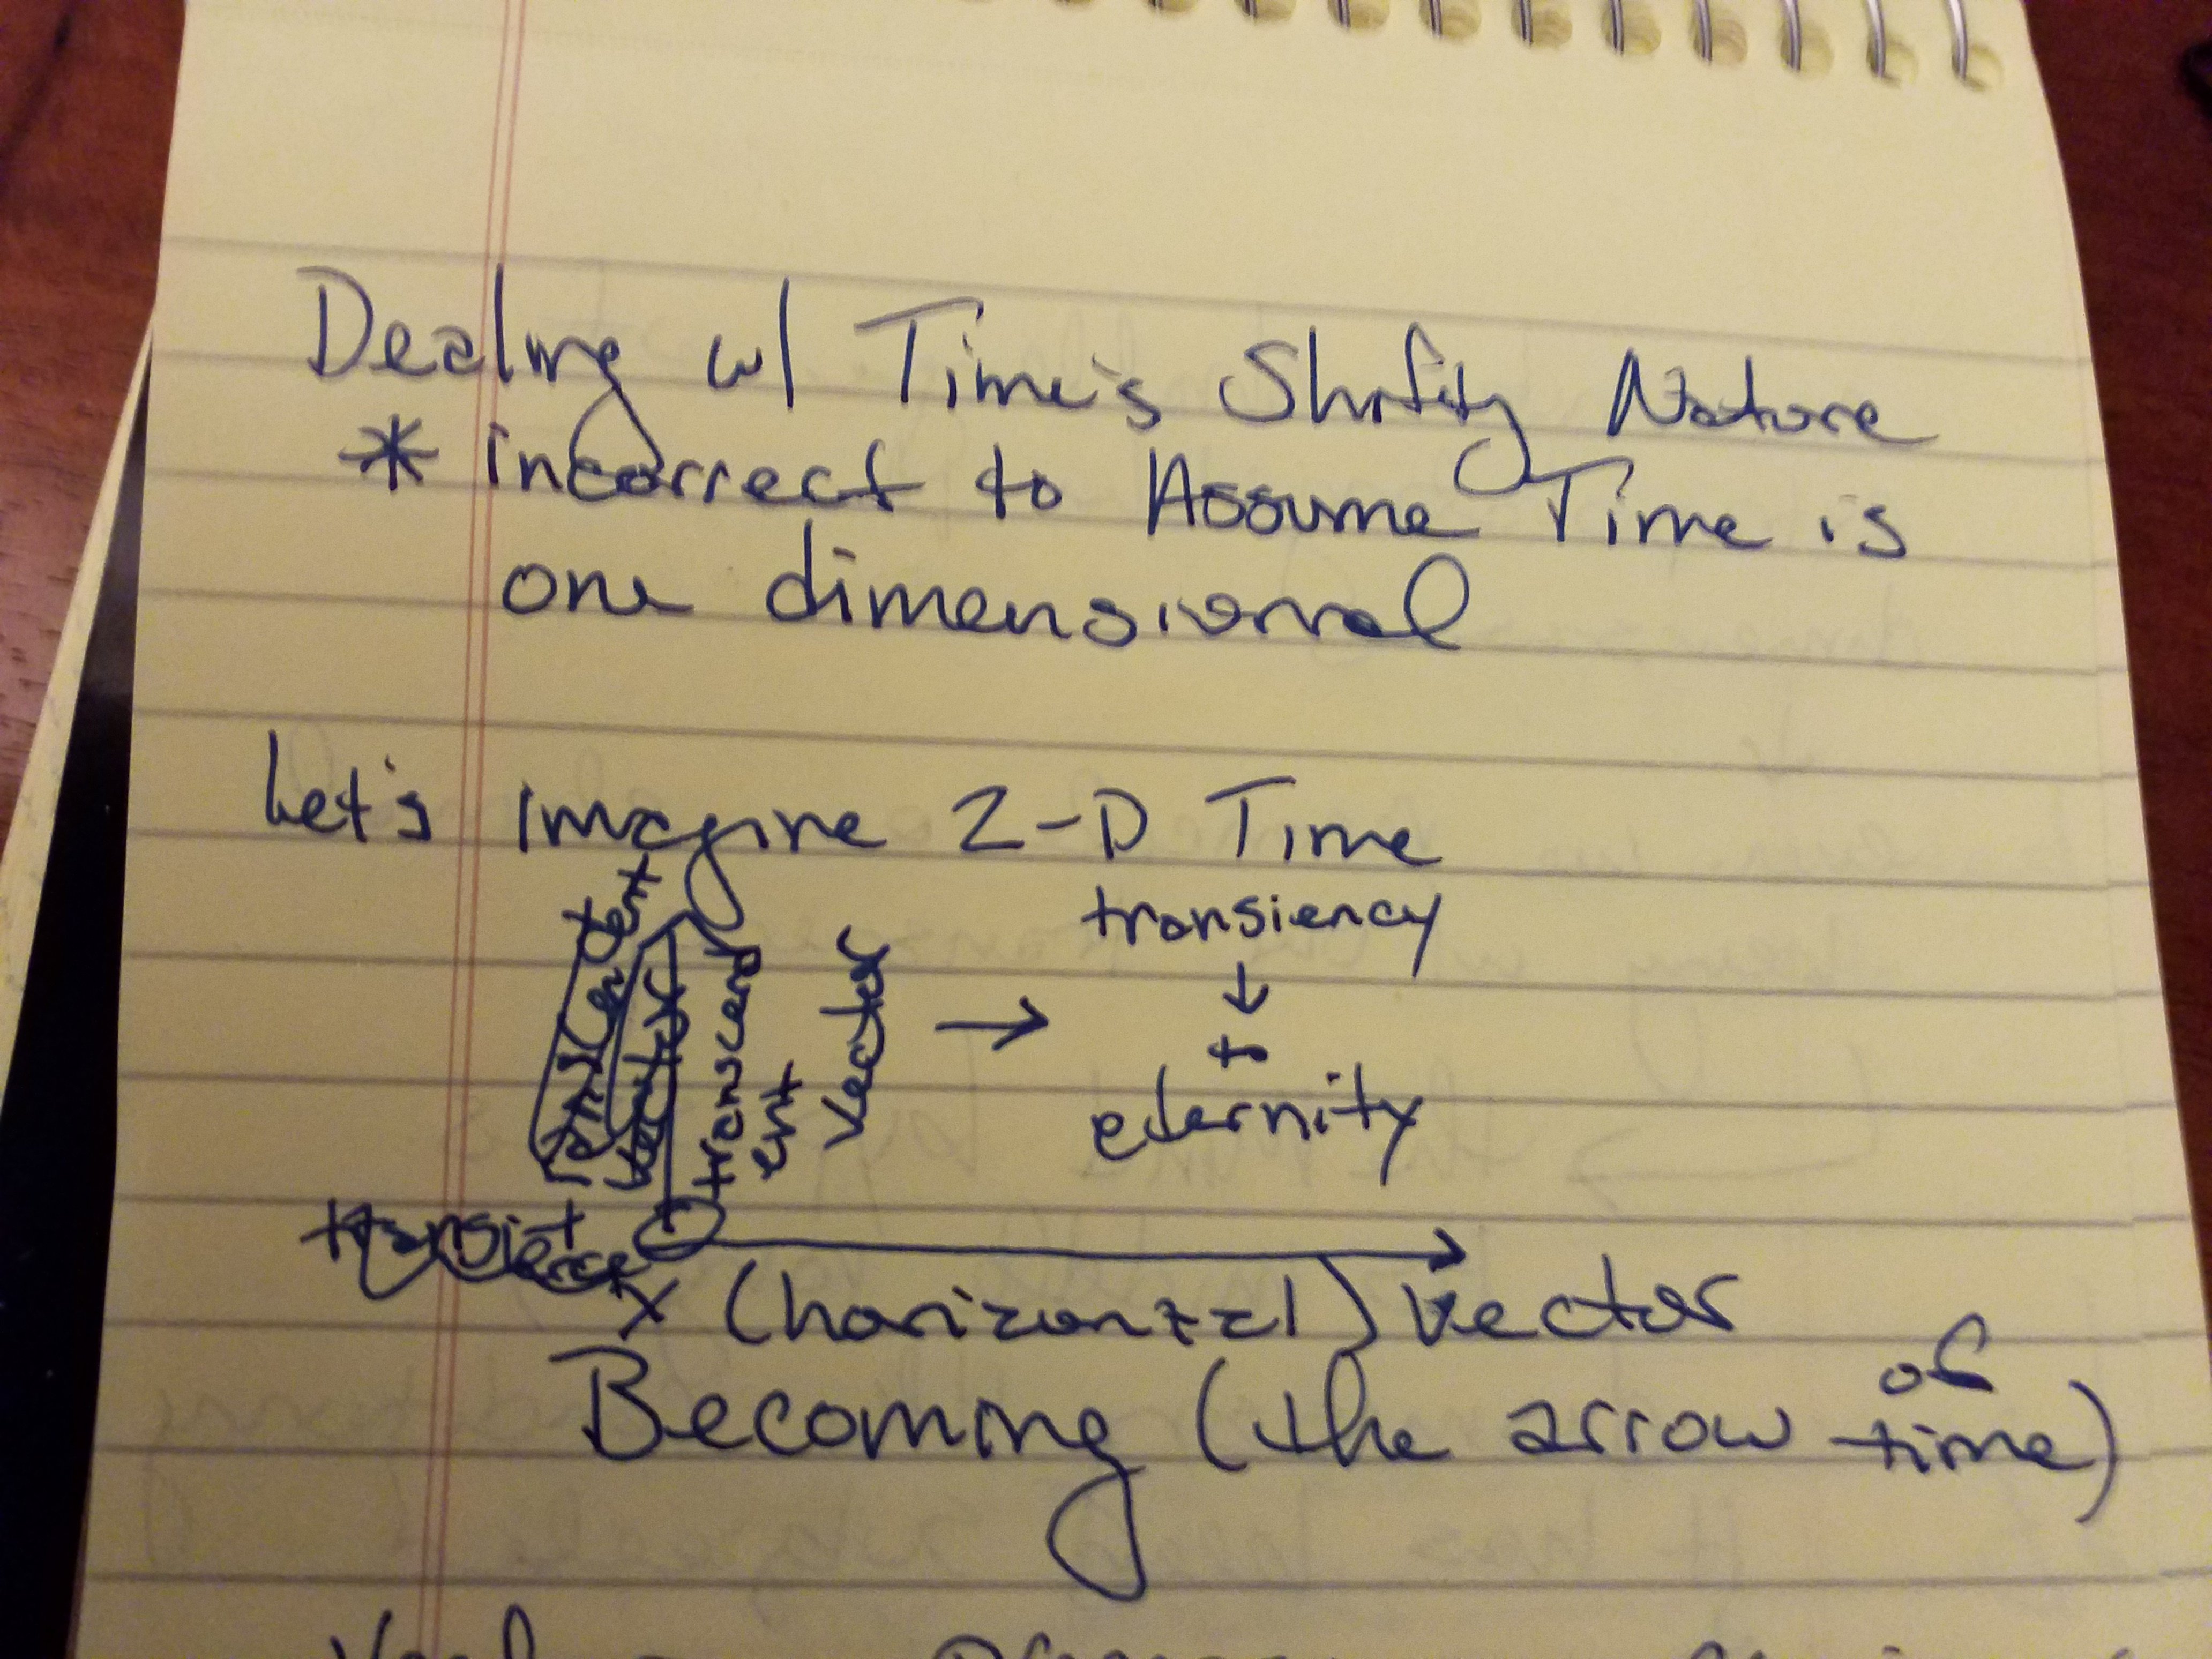 Dealing w/ Time's Shifty Nature
* incorrect to Assume Time is
one dimensional
Let's imagine 2-D Time
transcend
ent
vector
→
transiency
↓
to
eternity
x (horizontal) vector
Becoming (the arrow of
time)